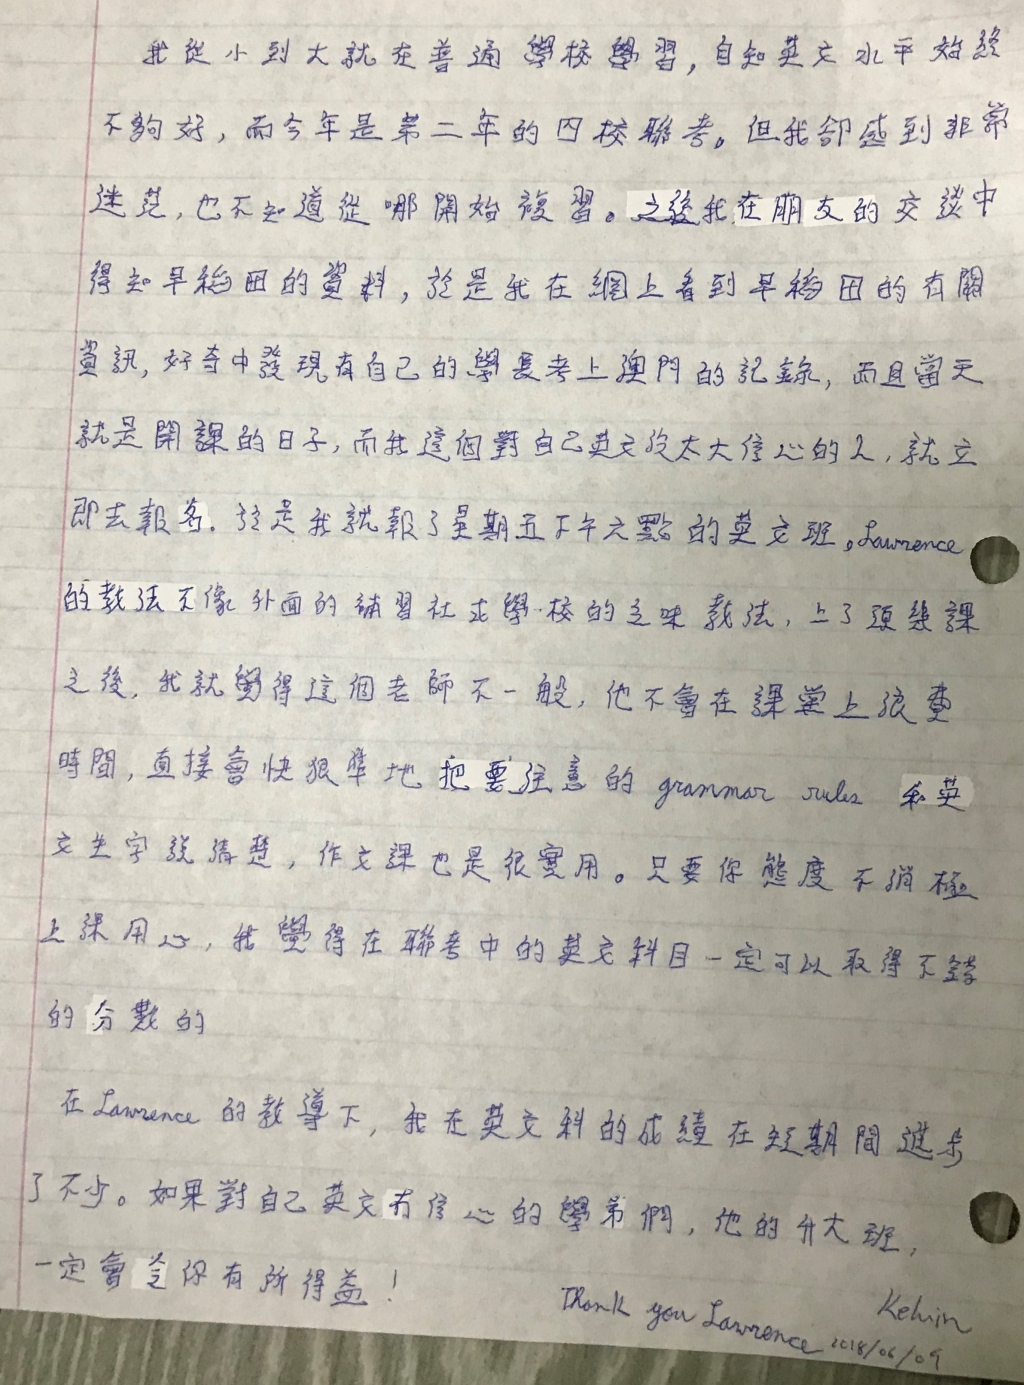 我從小到大就在普通學校學習,自知英文水平始終
不夠好,而今年是第二年的四校聯考。但我卻感到非常
迷茫,也不知道從哪開始複習。之後我在朋友的交談中
得知早稻田的資料,於是我在網上看到早稻田的有關
資訊,好奇中發現有自己的學長考上澳門的記錄,而且當天
就是開課的日子,而我這個對自己英文沒太大信心的人,就立
即去報名。於是我就報了星期五下午六點的英文班。Lawrence
的教法不像外面的補習社或學校的乏味教法,上了頭幾課
之後,我就覺得這個老師不一般,他不會在課堂上浪費
時間,直接會快狠準地把要注意的 grammar rules 和英
文生字說清楚,作文課也是很實用。只要你態度不消極
上課用心,我覺得在聯考中的英文科目一定可以取得不錯
的分數的
在Lawrence的教導下,我在英文科的成績在短期間進步
了不少。如果對自己英文冇信心的學弟們,他的升大班,
一定會令你有所得益!
Thank you Lawrence Kelvin
2018/06/09